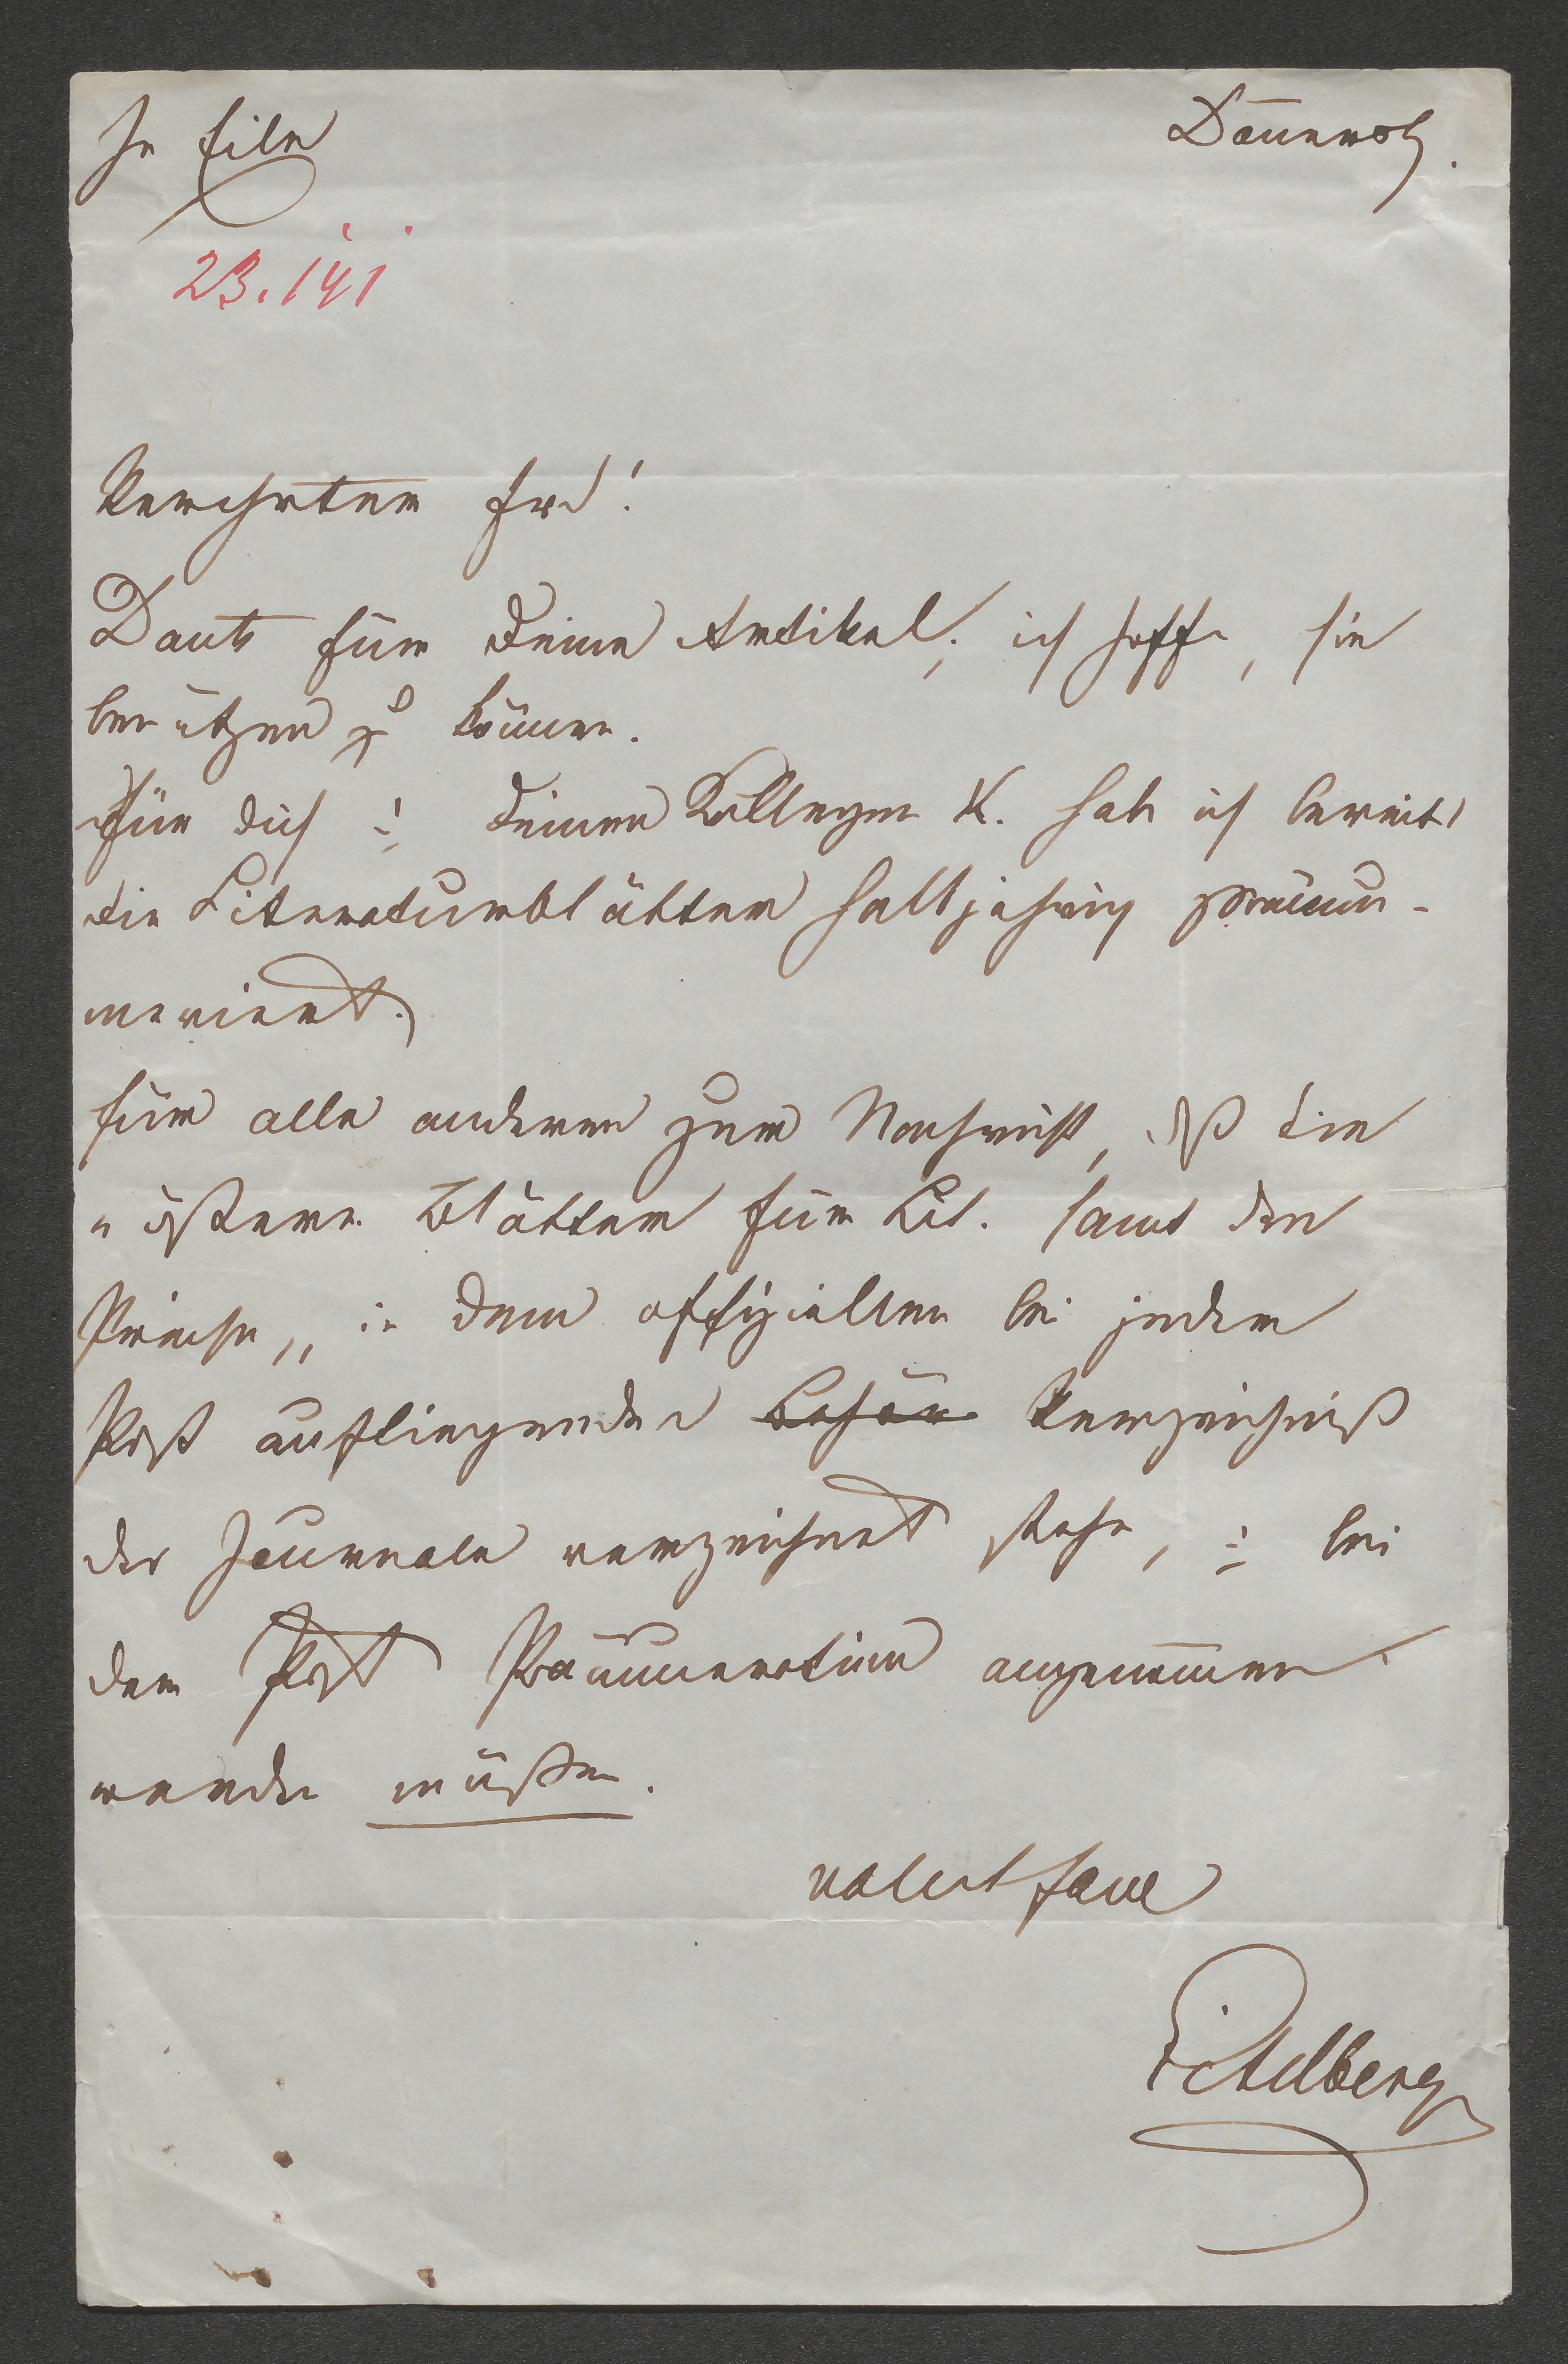 In Eile
Dōnerstg.
23.141
Verehrter Frd!
Dank für Deine Artikel; ich hoffe, sie
benützen zu können.
Für dich u Deinen Kollegen K. hab ich bereits
die Literaturblätter halbjährig pränu-
merirt.
Für alle anderen zur Nachricht, dß die
„österr. Blätter für Lit. samt dem
Preise„ in dem offiziellen bei jeder
Post aufliegenden Verzeichniß
der Journale verzeichnet stehe, u bei
der Post Pränumeration angenom̄en
werden müßen.
valet fave
Eitelberg